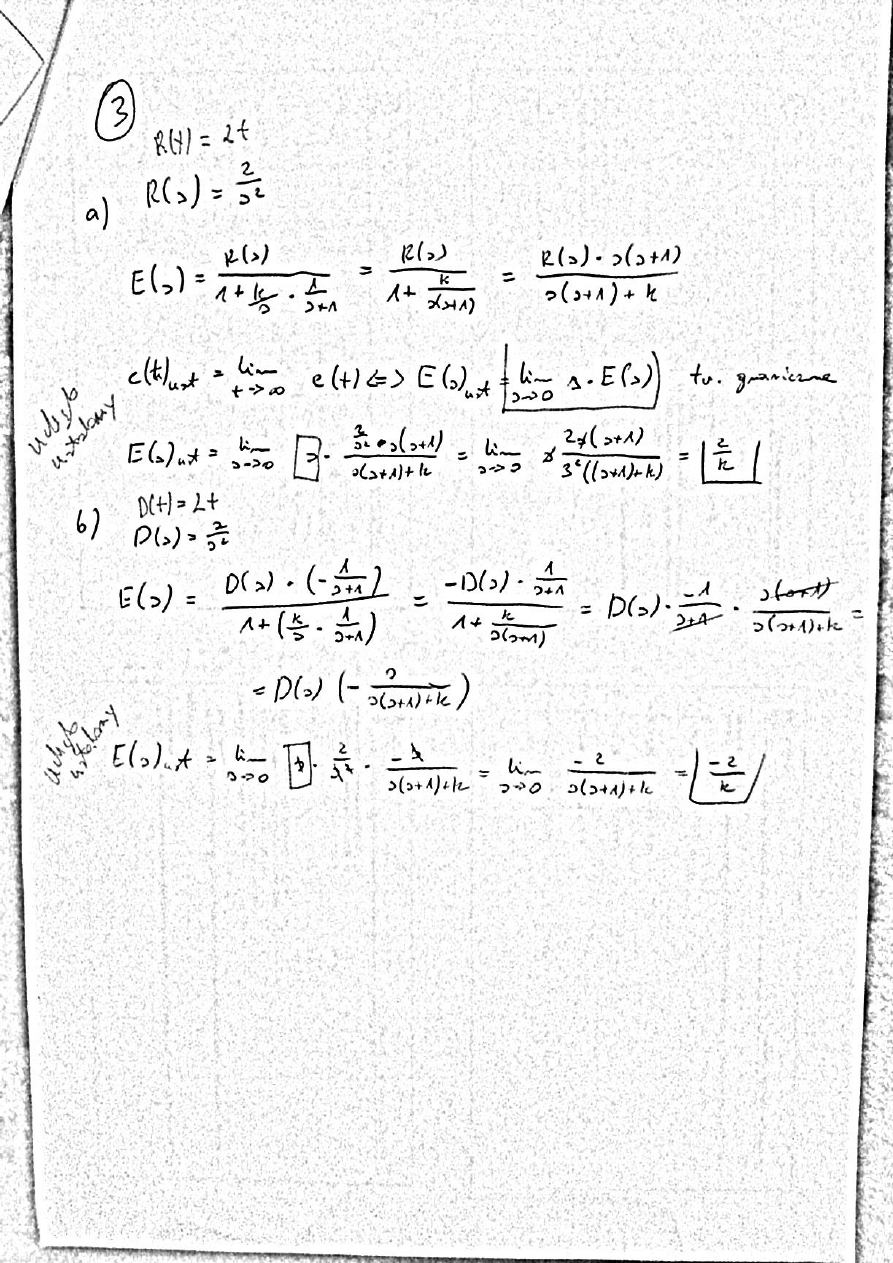 3
R(t) = 2t
a) R(s) = 2/s²
E(s) = R(s)/(1 + k/s · 1/(s+1)) = R(s)/(1 + k/(s(s+1))) = R(s) · s(s+1)/(s(s+1) + k)
e(t)ust = lim t→∞ e(t) <=> E(s)ust = lim s→0 s · E(s) tw. graniczne
uchyb ustalony
E(s)ust = lim s→0 s · (2/s² · s(s+1))/(s(s+1)+k) = lim s→0 s 2s(s+1)/(s²((s+1)+k) = 2/k
b) D(t) = 2t
D(s) = 2/s²
E(s) = D(s) · (-1/(s+1))/(1 + (k/s · 1/(s+1))) = -D(s) · 1/(s+1)/(1 + k/(s(s+1))) = D(s) · -1/(s+1) · s(s+1)/(s(s+1)+k) =
= D(s) (- s/(s(s+1)+k))
uchyb ustalony
E(s)ust = lim s→0 s · 2/s² · -s/(s(s+1)+k) = lim s→0 -2/(s(s+1)+k) = -2/k